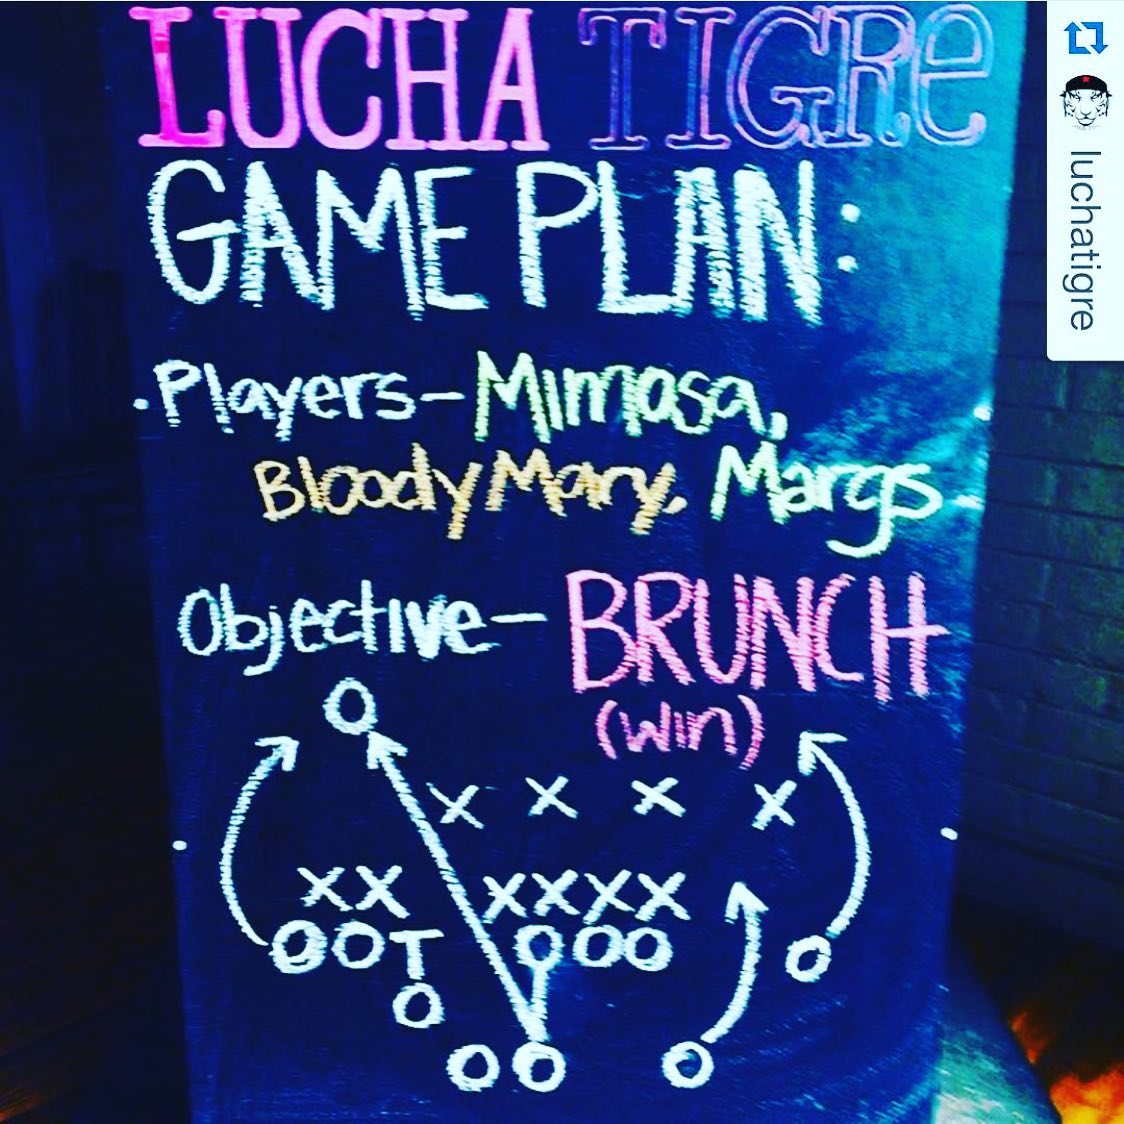 LUCHA TIGRe
GAME PLAN:
. Players- Mimosa,
Bloody Mary, Margs
Objective- BRUNCH
(win)
O
X X X X
XX XXXX
OOT OOO O
O
OO O
luchatigre